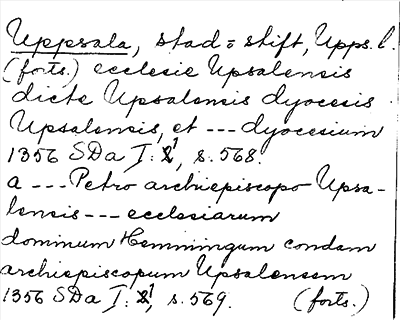 Uppsala, stad o stift, Upps. l.
(forts.) ecclesie Upsalensis
dicte Upsalensis dyocesis
Upsalensis, et --- dyocesium
1356 SDa I: 1, s. 568.
a --- Petro archiepiscopo Upsa-
lensis --- ecclesiarum
dominum Hemmingum condam
archiepiscopum Upsalensem
1356 SDa I: 1, s. 569. (forts.)